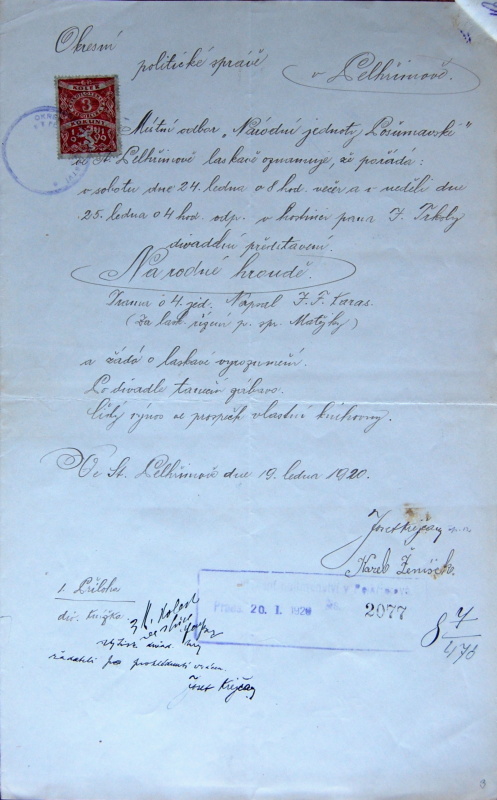 Okresní
politické správě
v Pelhřimově.
KOLEK
3
KORUNY
1919
Místní odbor „Národní jednoty Pošumavské"
ve St. Pelhřimově laskavě oznamuje, že pořádá:
v sobotu dne 24. ledna o 8 hod. večer a v neděli dne
25. ledna o 4 hod. odp. v hostinci pana J. Trkoly
divadelní představení.
Na rodné hroudě.
Drama o 4. jed. Napsal J. F. Karas.
(Za lask. řízení p. sp. Matějky)
a žádá o laskavé vyrozumění.
Po divadle taneční zábava.
Čistý výnos ve prospěch vlastní knihovny.
Ve St. Pelhřimově dne 19. ledna 1920.
Josef Krejčí
Karel Ženíšek
1 Příloha
div. knížka
Praes. 20. I. 1920 čís. 2077
8 7/476
Josef Krejčí